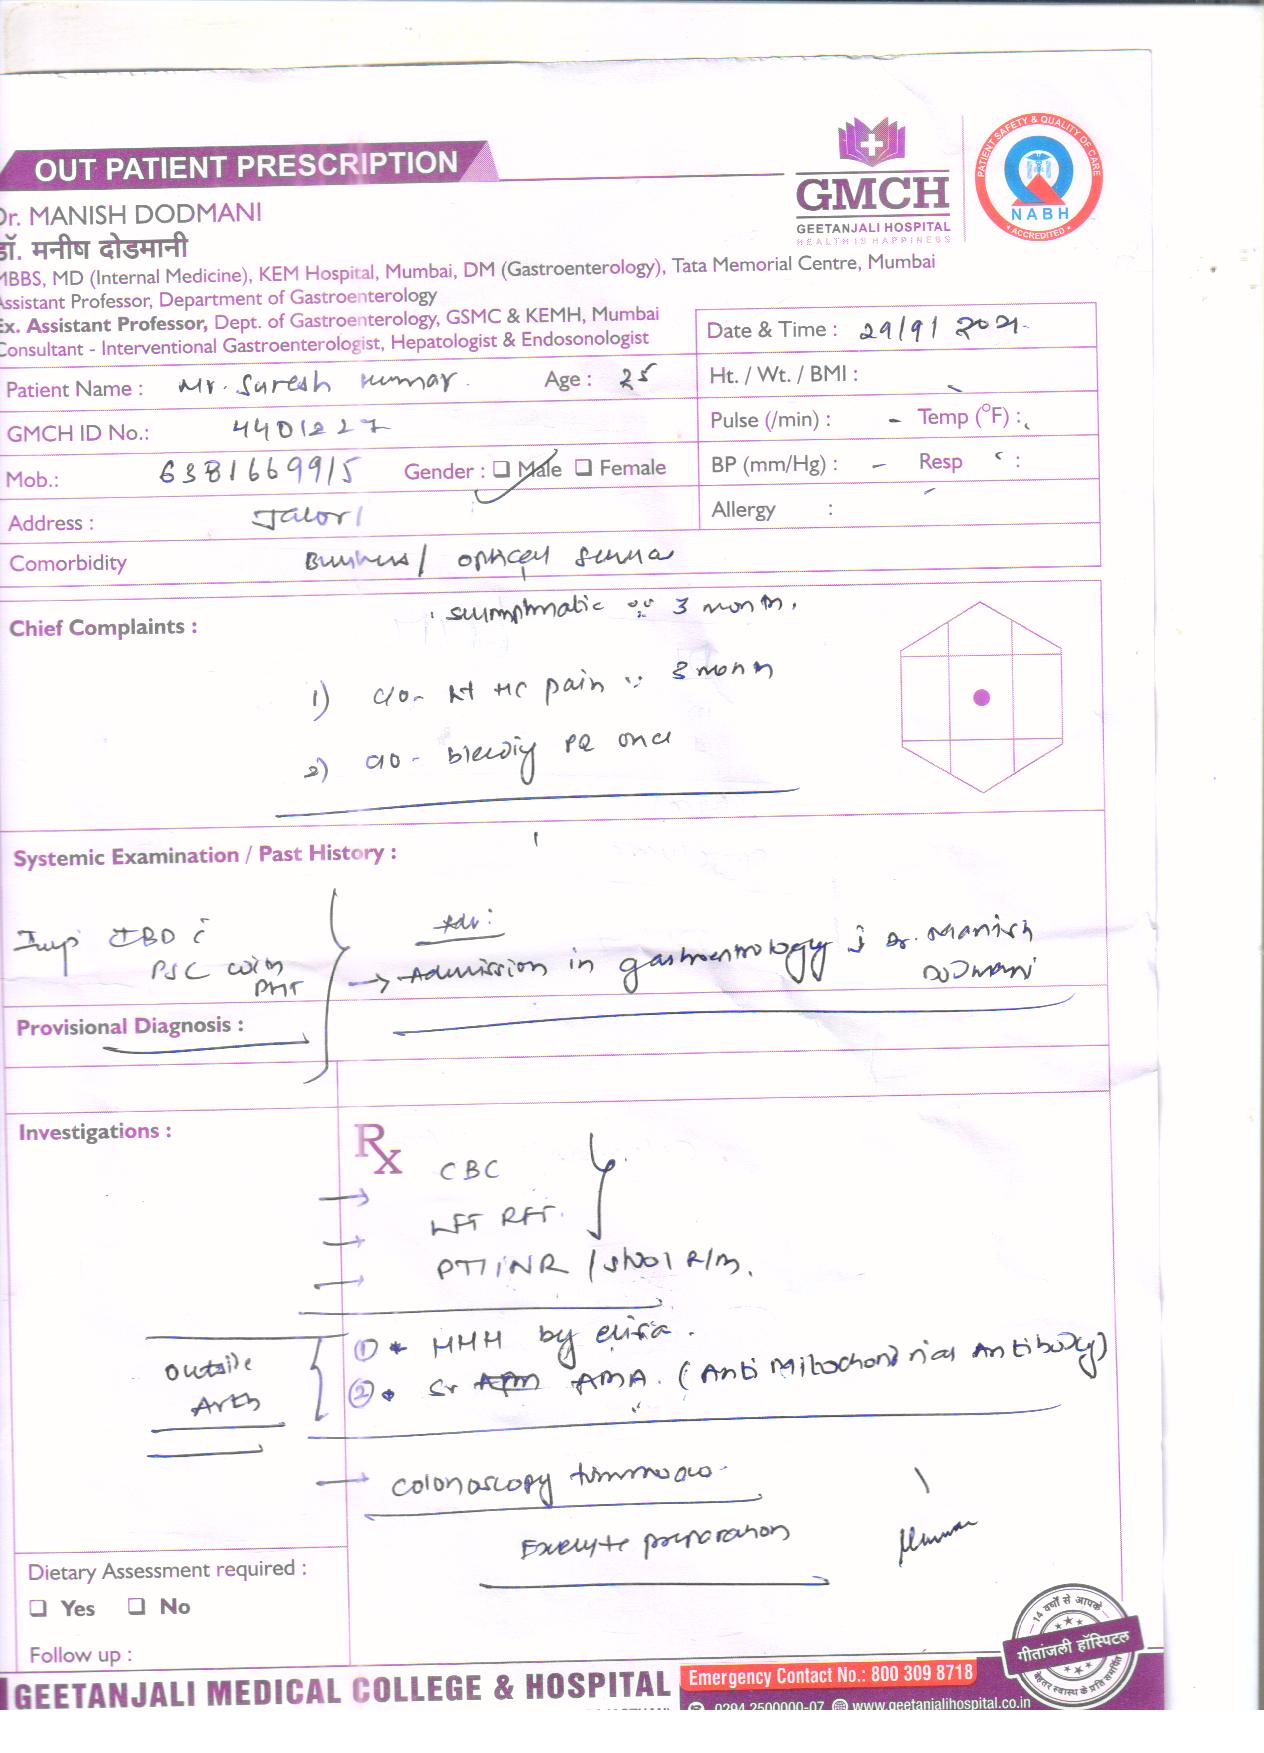 OUT PATIENT PRESCRIPTION
GMCH
GEETANJALI HOSPITAL
HEALTH IS HAPPINESS
PATIENT SAFETY & QUALITY OF CARE
NABH
ACCREDITED
Dr. MANISH DODMANI
डॉ. मनीष दोडमानी
MBBS, MD (Internal Medicine), KEM Hospital, Mumbai, DM (Gastroenterology), Tata Memorial Centre, Mumbai
Assistant Professor, Department of Gastroenterology
Ex. Assistant Professor, Dept. of Gastroenterology, GSMC & KEMH, Mumbai
Consultant - Interventional Gastroenterologist, Hepatologist & Endosonologist
Date & Time : 29/9/2021
Patient Name : Mr. Suresh Kumar Age : 25
Ht. / Wt. / BMI :
GMCH ID No.: 4401227
Pulse (/min) : - Temp (°F) :
Mob.: 6381669915 Gender : Male Female
BP (mm/Hg) : - Resp :
Address : Jalor
Allergy :
Comorbidity
Chief Complaints :
3 month.
1) c/o - Rt HC pain 3 month
2) c/o - bleeding PR once
Systemic Examination / Past History :
Adv:
Imp IBD
PSC with
PHT
→ Admission in gastroentrology Dr. Manish
Dodmani
Provisional Diagnosis :
Investigations :
Rx
→ CBC
→ LFT RFT.
→ PT/INR / Stool R/M.
Outside
① * by elisa.
② * Sr AMA. (Anti Mitochondrial Antibody)
→ colonoscopy
preparation
Dietary Assessment required :
Yes No
Follow up :
14 वर्षों से आपके
गीतांजली हॉस्पिटल
बेहतर स्वास्थ के प्रति समर्पित
GEETANJALI MEDICAL COLLEGE & HOSPITAL
Emergency Contact No.: 800 309 8718
0294 2500000-07 www.geetanjalihospital.co.in